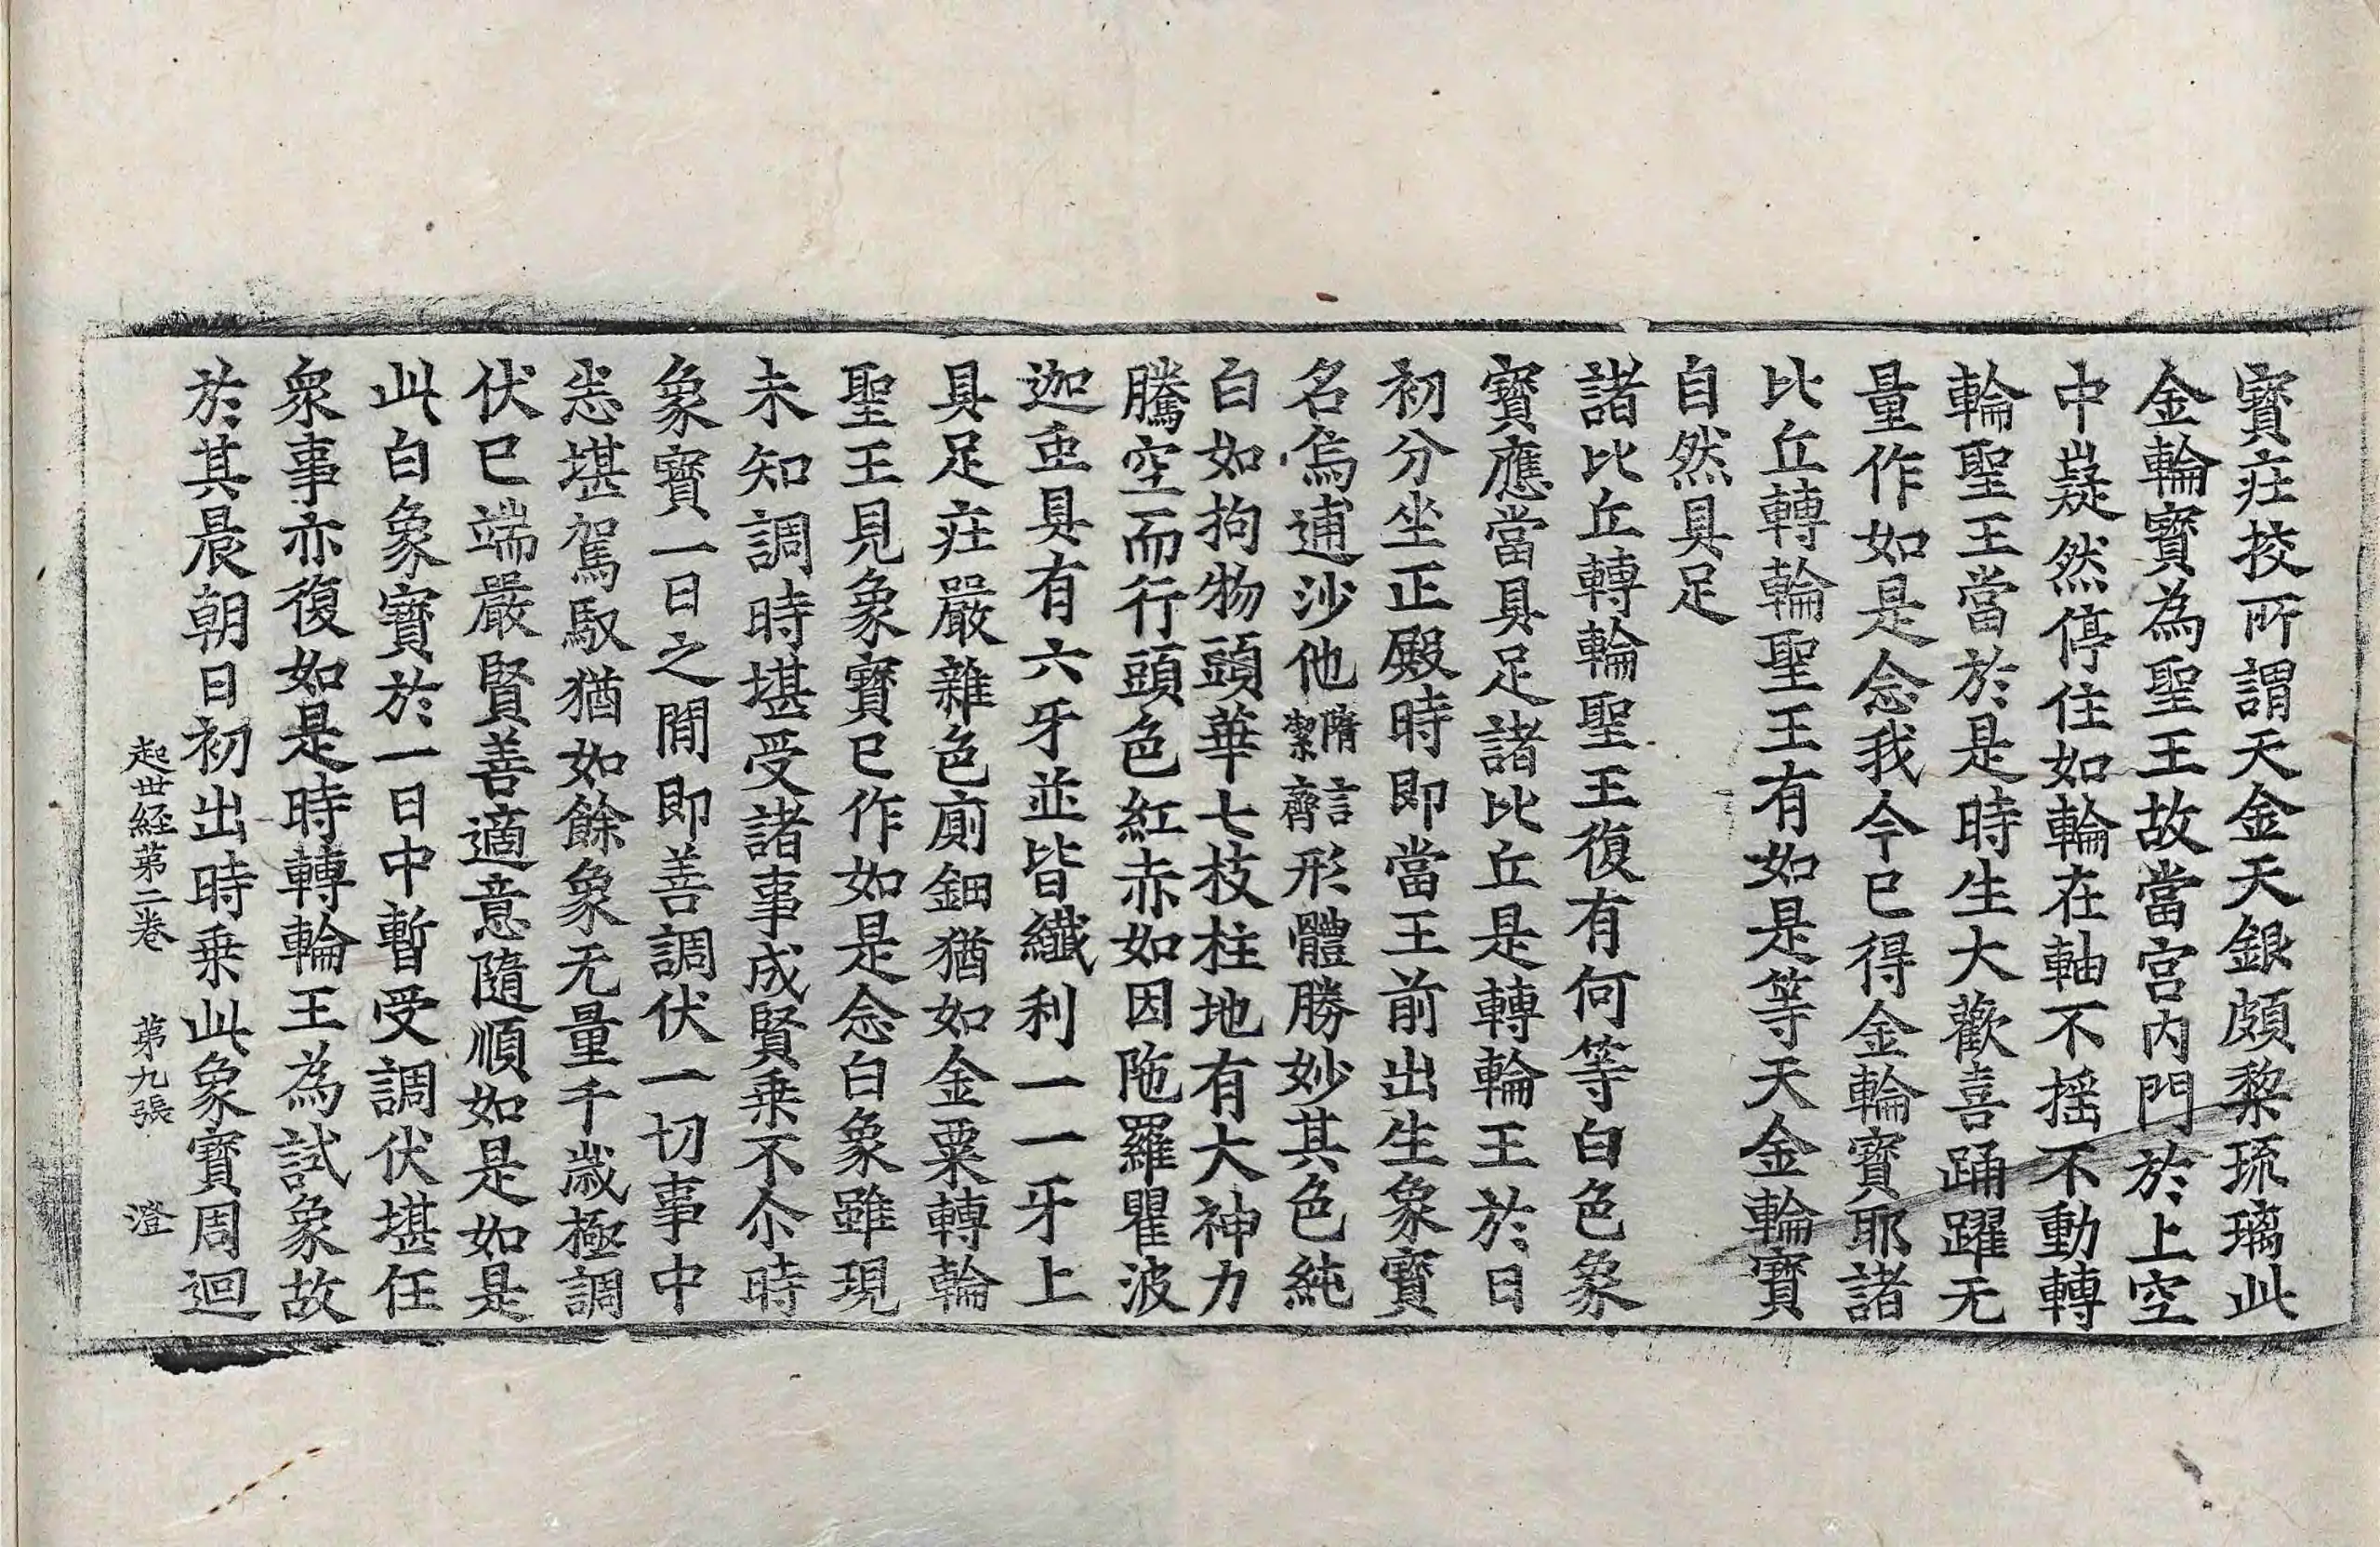 寶莊挍所謂天金天銀頗黎琉璃此
金輪寶為聖王故當宮內門於上空
中嶷然停住如輪在軸不搖不動轉
輪聖王當於是時生大歡喜踊躍无
量作如是念我今已得金輪寶耶諸
比丘轉輪聖王有如是等天金輪寶
自然具足
諸比丘轉輪聖王復有何等白色象
寶應當具足諸比丘是轉輪王於日
初分坐正殿時即當王前出生象寶
名烏逋沙他隋言絜齊形體勝妙其色純
白如拘物頭華七枝柱地有大神力
騰空而行頭色紅赤如因陁羅瞿波
迦虫具有六牙並皆纖利一一牙上
具足莊嚴雜色廁鈿猶如金粟轉輪
聖王見象寶已作如是念白象雖現
未知調時堪受諸事成賢乗不尒時
象寶一日之間即善調伏一切事中
悉堪駕馭猶如餘象无量千歲極調
伏已端嚴賢善適意隨順如是如是
此白象寶於一日中暫受調伏堪任
衆事亦復如是時轉輪王為試象故
於其晨朝日初出時乗此象寶周迴
起世経第二卷 第九張 澄